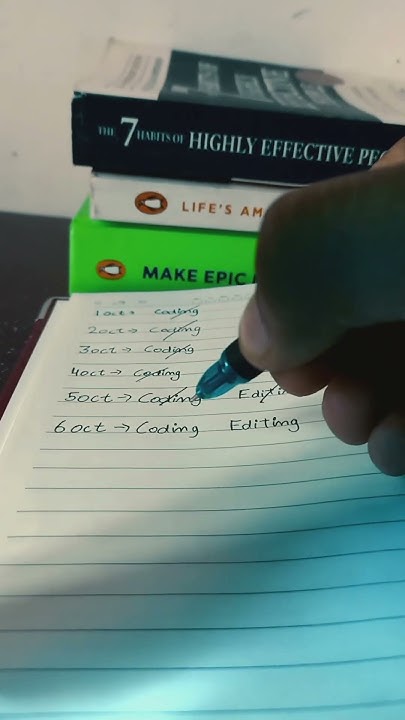 THE 7 HABITS OF HIGHLY EFFECTIVE
LIFE'S AM
MAKE EPIC
1 Oct → Coding
2 Oct → Coding
3 Oct → Coding
4 Oct → Coding
5 Oct → Coding Editin
6 Oct → Coding Editing